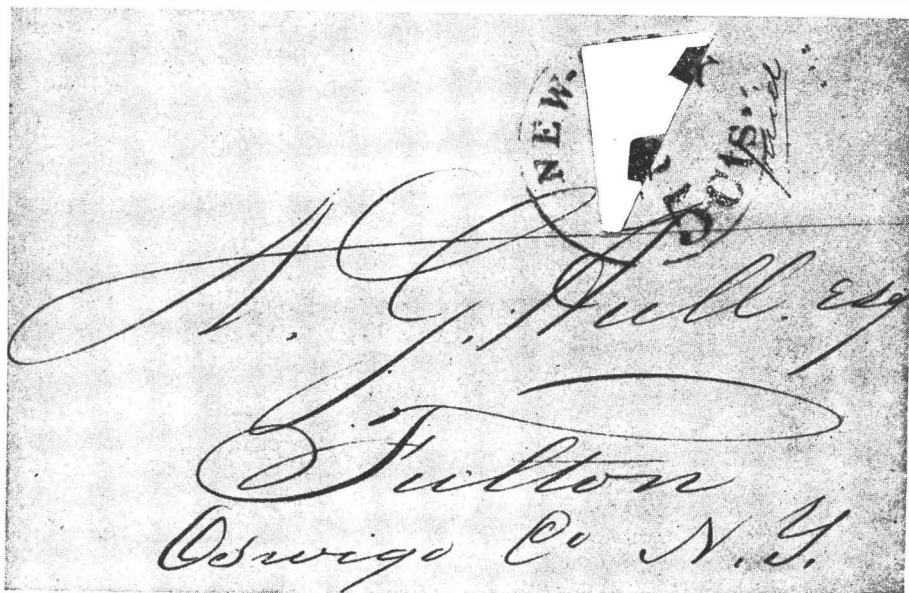 NEW. 5 cts.
Paid
A. G. Hull. Esq
Fulton
Oswigo Co N. Y.